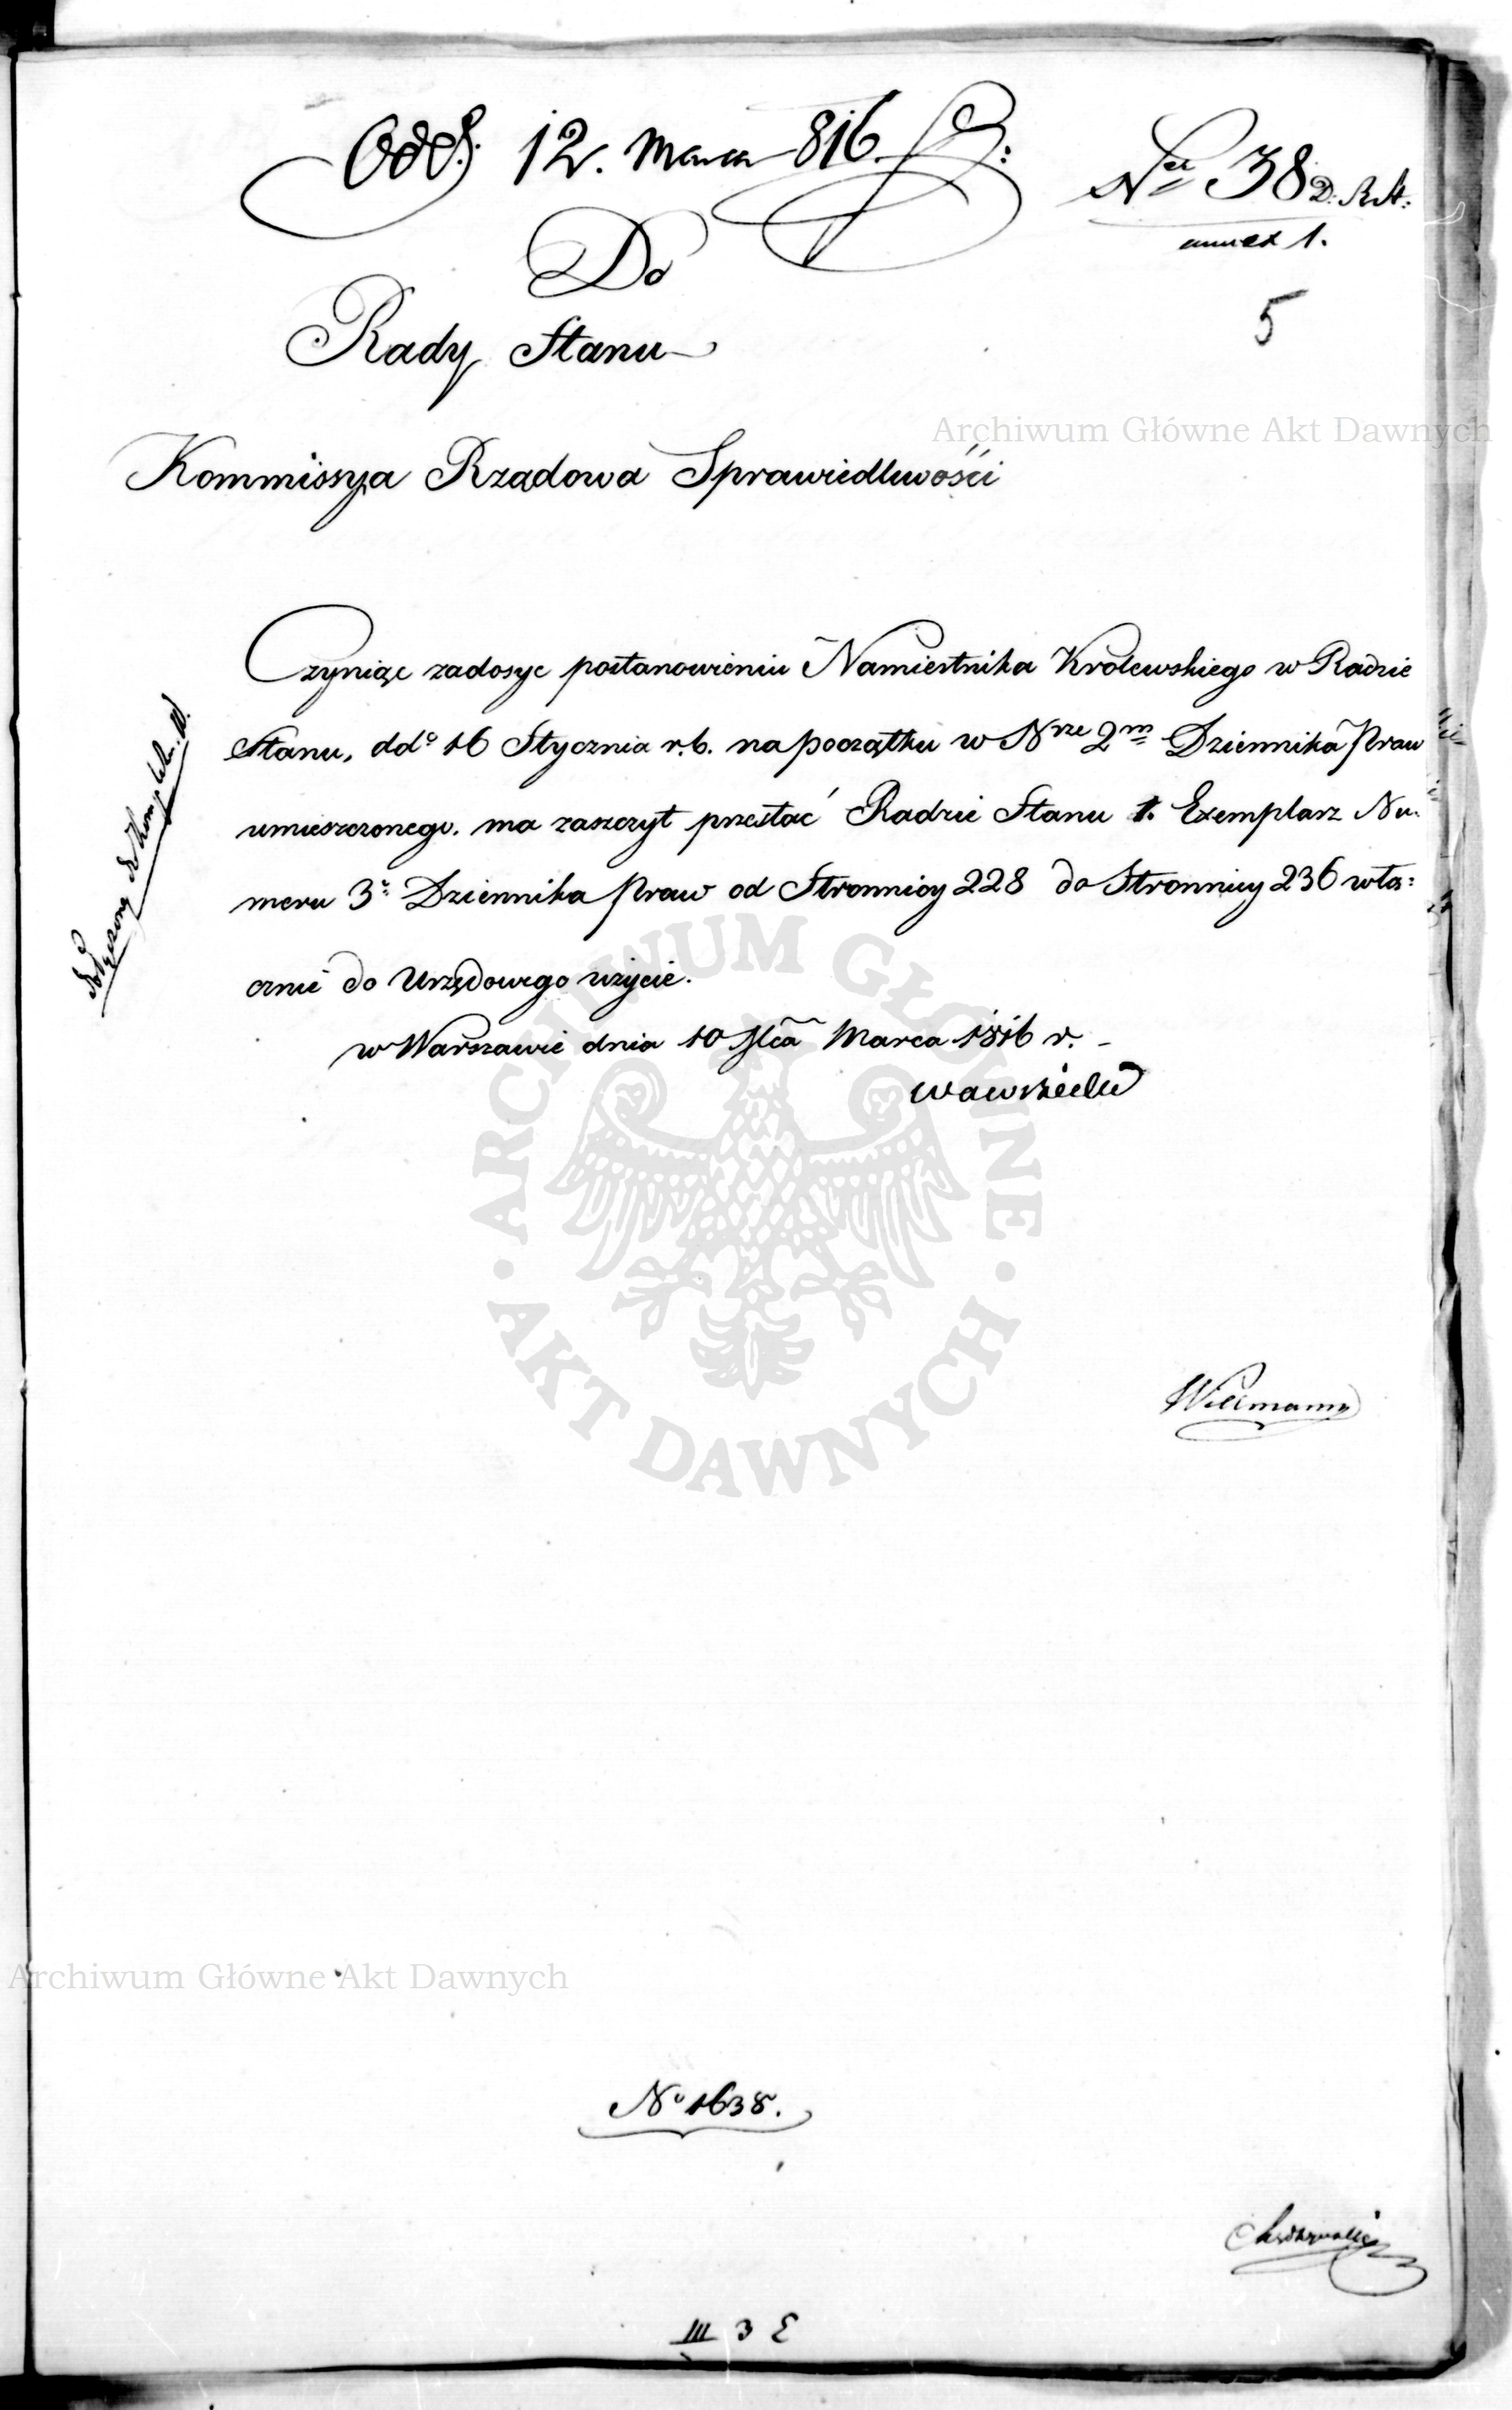 Odd. 12. Marca 816.
Nr 38 D. R. St:
annex 1.
5
Do
Rady Stanu
Archiwum Główne Akt Dawnych
Kommissya Rządowa Sprawiedliwości
Czyniąc zadosyc postanowieniu Namiestnika Krolewskiego w Radzie
Stanu, ddo 16 Stycznia r.b. na początku w Nrze 2m Dziennika Praw
umieszczonego. ma zaszczyt przesłać Radzie Stanu 1. Exemplarz Nu-
meru 3o Dziennika Praw od Stronnicy 228 do Stronnicy 236 włą:
cznie do Urzędowego użycie.
w Warszawie dnia 10 Mca Marca 1816 r. -
Wawrzecki
ARCHIWUM GŁÓWNE
AKT DAWNYCH
Willmann
Archiwum Główne Akt Dawnych
No 1638.
III 3 E